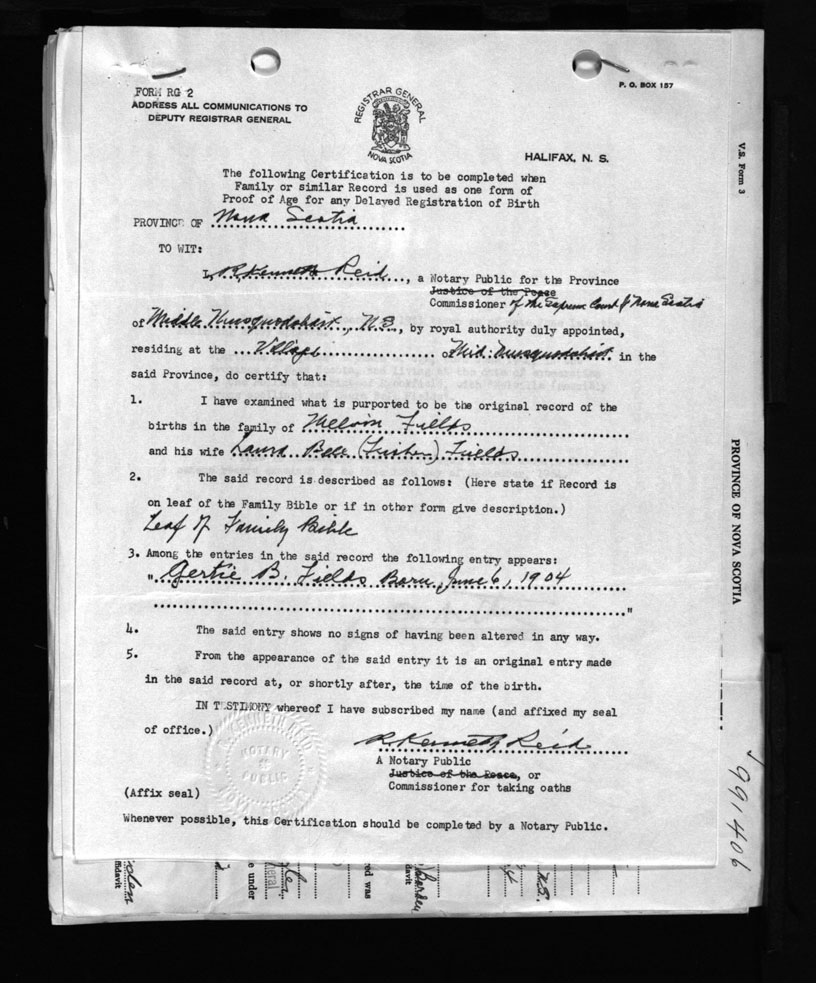 FORM RG 2
ADDRESS ALL COMMUNICATIONS TO
DEPUTY REGISTRAR GENERAL
REGISTRAR GENERAL
NOVA SCOTIA
P. O. BOX 157
HALIFAX, N. S.
The following Certification is to be completed when
Family or similar Record is used as one form of
Proof of Age for any Delayed Registration of Birth
PROVINCE OF Nova Scotia
TO WIT:
I, R. Kenneth Reid, a Notary Public for the Province
Justice of the Peace
Commissioner of the Supreme Court of Nova Scotia
of Middle Musquodoboit, N.S., by royal authority duly appointed,
residing at the Village of Mid. Musquodoboit in the
said Province, do certify that:
1. I have examined what is purported to be the original record of the
births in the family of Melvin Fields
and his wife Laura Bell (Fisher) Fields
2. The said record is described as follows: (Here state if Record is
on leaf of the Family Bible or if in other form give description.)
Leaf of Family Bible
3. Among the entries in the said record the following entry appears:
" Gertie B. Fields Born June 6, 1904
"
4. The said entry shows no signs of having been altered in any way.
5. From the appearance of the said entry it is an original entry made
in the said record at, or shortly after, the time of the birth.
IN TESTIMONY whereof I have subscribed my name (and affixed my seal
of office.)
R. Kenneth Reid
A Notary Public
Justice of the Peace, or
Commissioner for taking oaths
R. KENNETH REID
NOTARY
PUBLIC
NOVA SCOTIA
(Affix seal)
Whenever possible, this Certification should be completed by a Notary Public.
V.S. Form 3
PROVINCE OF NOVA SCOTIA
991406
e under
red was
N.S.